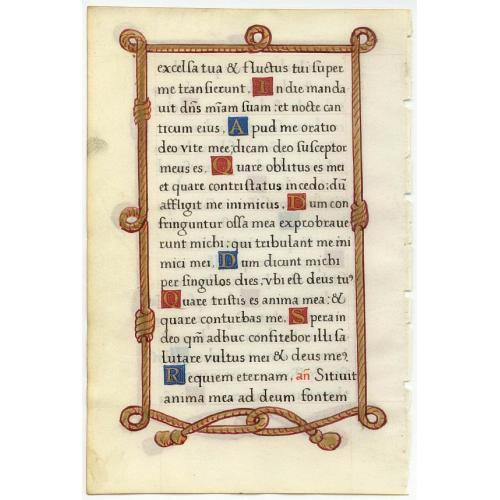 excelsa tua & fluctus tui super
me transierunt. In die manda
uit dn̄s mīam suam: et nocte can
ticum eius. Apud me oratio
deo vite mee; dicam deo susceptor
meus es. Quare oblitus es mei
et quare contristatus incedo: dū
affligit me inimicus. Dum con
fringuntur ossa mea exprobraue
runt michi; qui tribulant me ini
mici mei. Dum dicunt michi
per singulos dies; vbi est deus tuꝰ
Quare tristis es anima mea: &
quare conturbas me. Spera in
deo qm̄ adhuc confitebor illi sa
lutare vultus mei & deus meꝰ.
Requiem eternam. an̄ Sitiuit
anima mea ad deum fontem